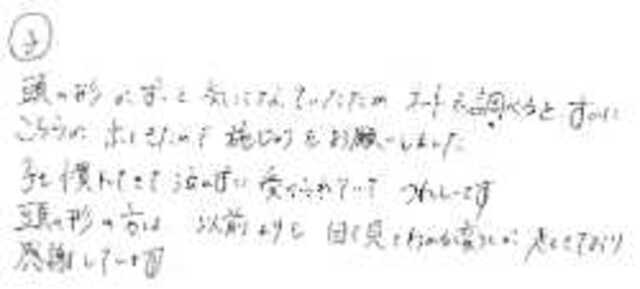 子
頭の形がずっと気になっていたため ネットで調べると すぐに
こちらが出てきたので施じゅつをお願いしました
子も慣れてきて 泣かずに受けられていて うれしいです
頭の形の方は 以前よりも 目で見てわかる変化が出てきており
感謝しています